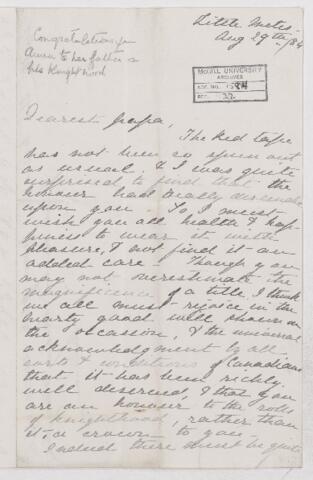 Little Metis
Aug 29th /84
Congratulations from
Anna to her father on
his Knighthood
McGILL UNIVERSITY
ARCHIVES
ACC. NO. 1584
REF. 22
Dearest Papa
The Red tape
has not been so spun out
as usual, & I was quite
surprised to find that the
honour had really descended
upon you. So I must
wish you all health & hap-
piness to wear it with
pleasure, & not find it an
added care. Though you
may not overestimate the
magnificence of a title, I think
we all must rejoice in the
hearty good will shown on
the occasion, & the universal
acknowledgment by all
sorts & conditions of Canadians
that it has been richly
well deserved, & that you
are an honour to the rolls
of Knighthood, rather than
it a crown to you.
Indeed there must be quite